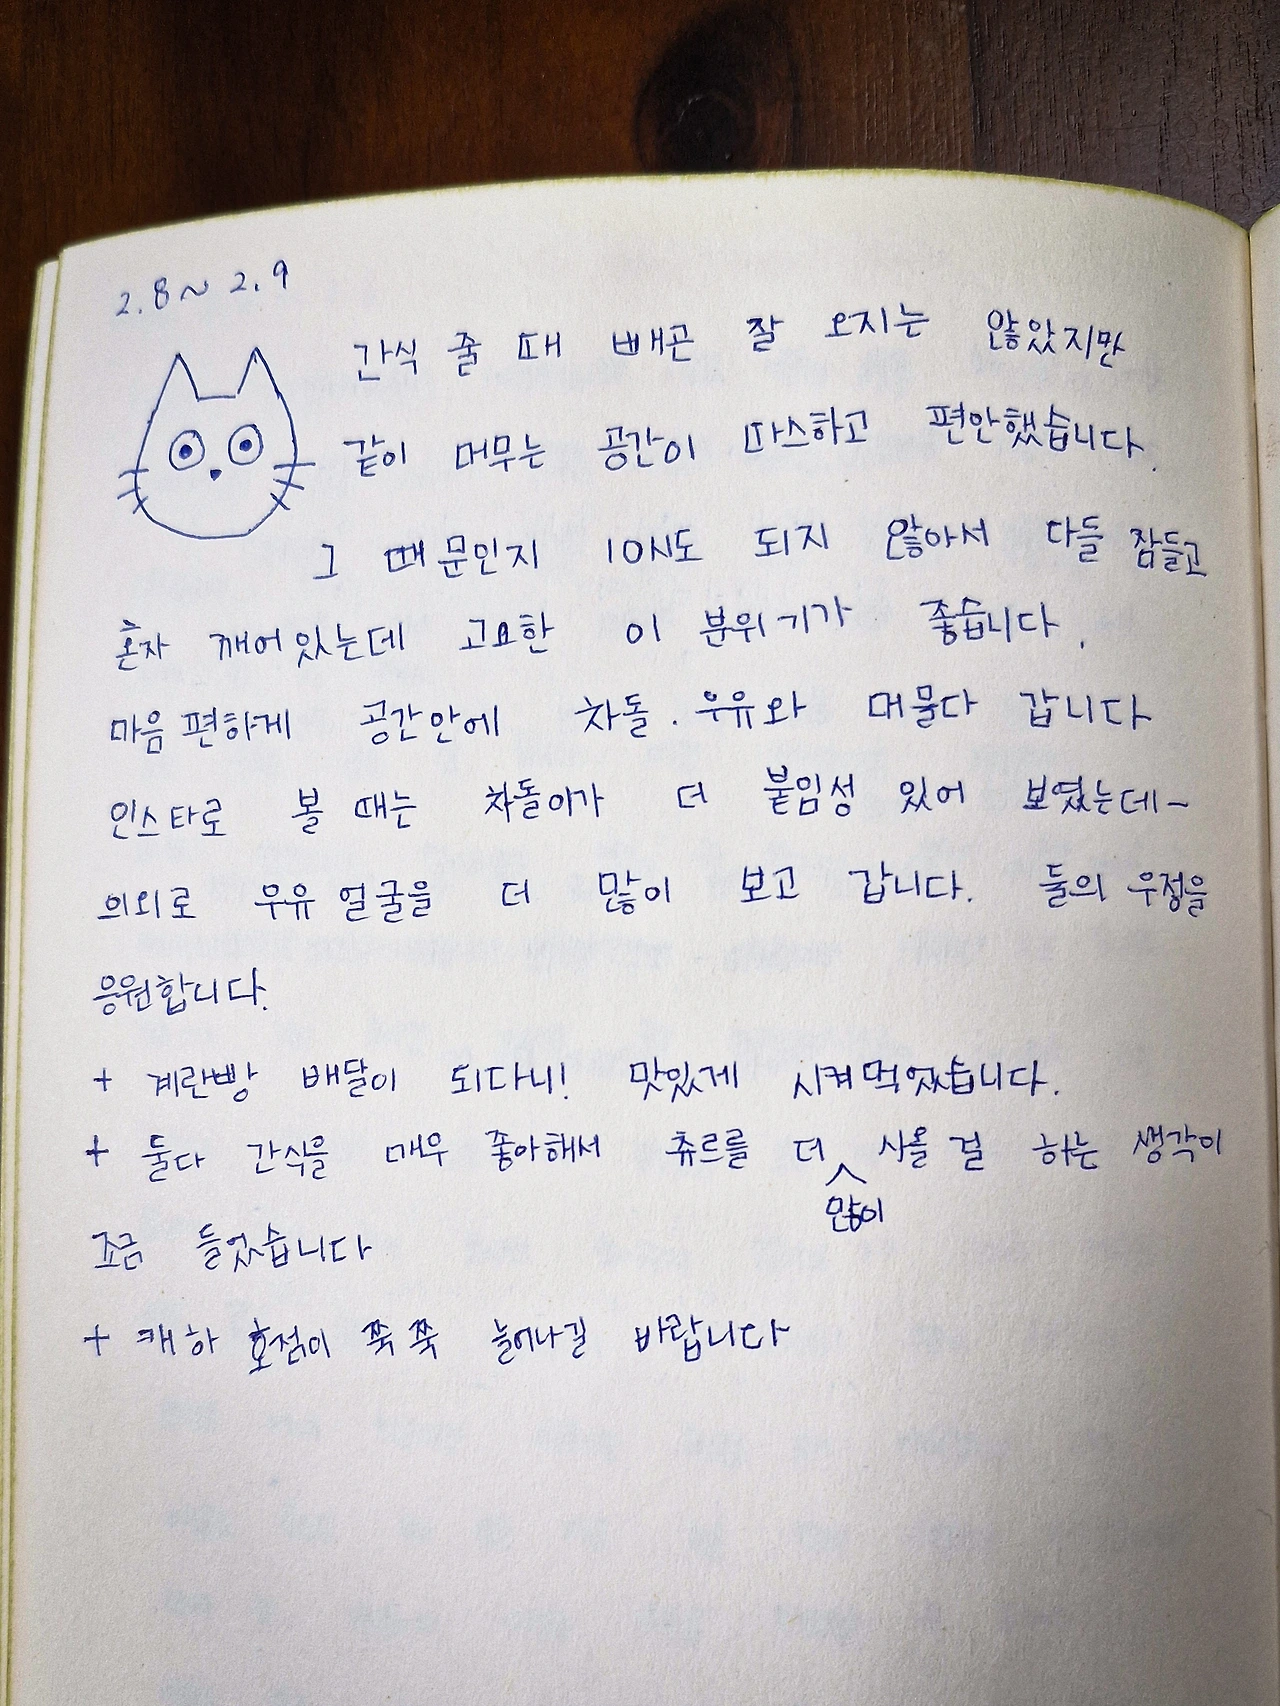 2.8~2.9
간식 줄 때 빼곤 잘 오지는 않았지만
같이 머무는 공간이 따스하고 편안했습니다.
그 때문인지 10시도 되지 않아서 다들 잠들고
혼자 깨어있는데 고요한 이 분위기가 좋습니다.
마음 편하게 공간안에 차돌.우유와 머물다 갑니다
인스타로 볼 때는 차돌이가 더 붙임성 있어 보였는데~
의외로 우유 얼굴을 더 많이 보고 갑니다. 둘의 우정을
응원합니다.
+ 계란빵 배달이 되다니! 맛있게 시켜먹었습니다.
+ 둘다 간식을 매우 좋아해서 츄르를 더 사올 걸 하는 생각이
많이
조금 들었습니다
+ 캐하 호점이 쭉쭉 늘어나길 바랍니다